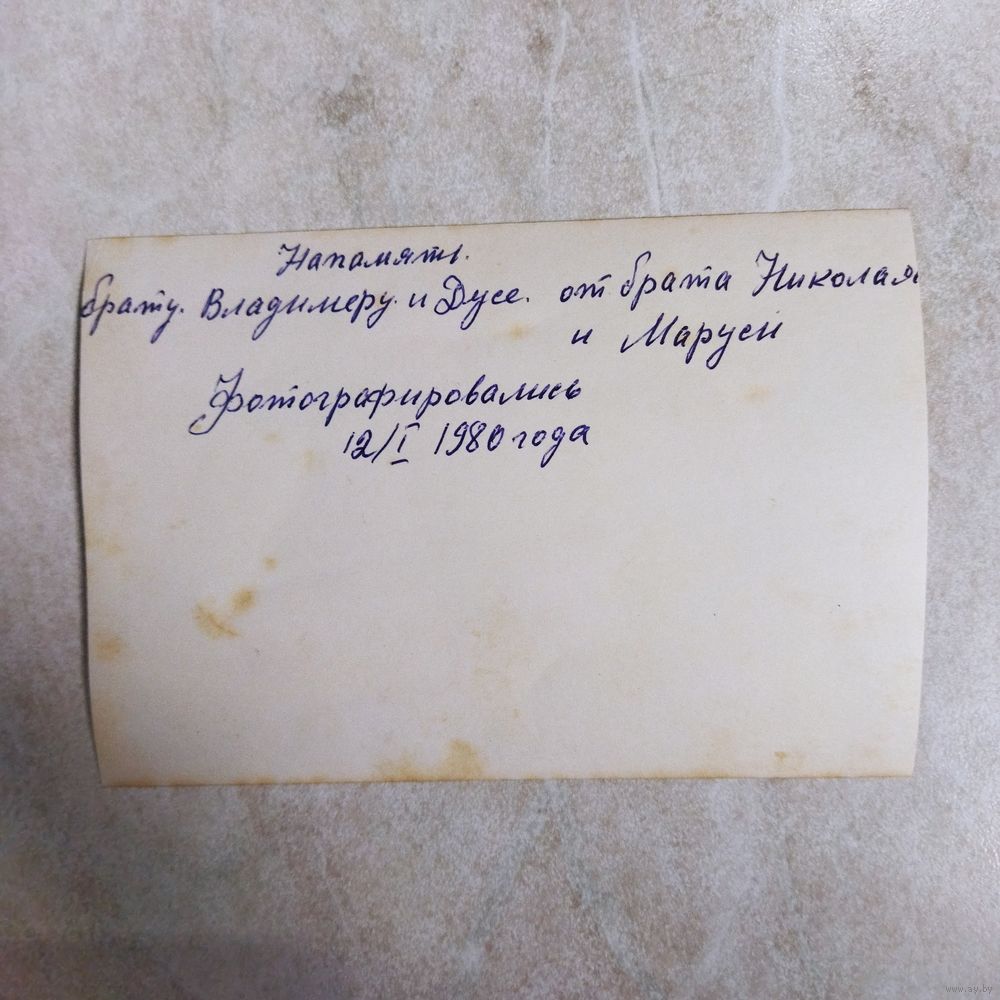 Напамять.
брату. Владимеру. и Дусе. от брата Николая
и Маруси
Фотографировались
12/I 1980 года
www.ay.by